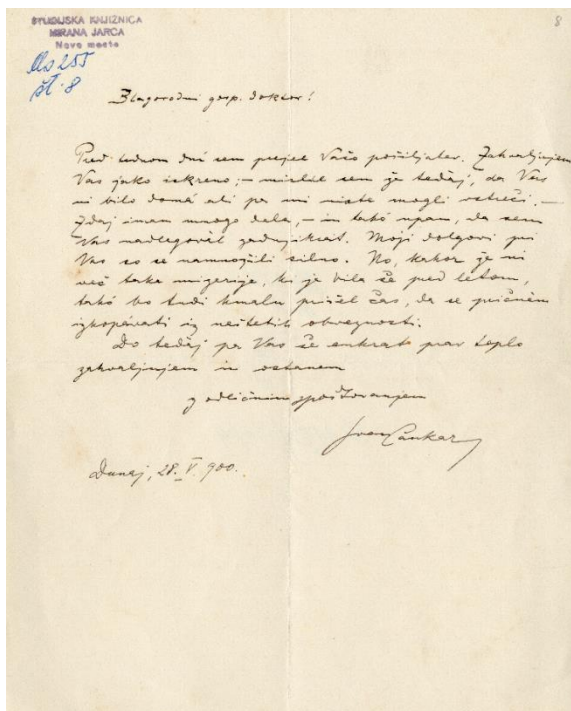 ŠTUDIJSKA KNJIŽNICA
MIRANA JARCA
Novo mesto
Ms 255
št. 8
8
Blagorodni gosp. doktor!
Pred tednom dni sem prejel Vašo pošiljatev. Zahvaljujem
Vas jako iskreno; – mislil sem že tedàj, da Vas
ni bilo domá ali pa mi niste mogli ustreči. –
Zdaj imam mnogo dela, – in takó upam, da sem
Vas nadlegovàl zadnjikrat. Moji dolgovi pri
Vas so se namnožili silno. No, kakor že ni
več take mizerije, ki je bila še pred letom,
takó bo tudi kmalu prišel čas, da se pričnèm
izkopávati iz neštetih obveznosti.
Do tedàj pa Vas še enkrat prav toplo
zahvaljujem in ostanem
z odličnim spoštovanjem
Ivan Cankar
Dunaj, 28. V. 900.